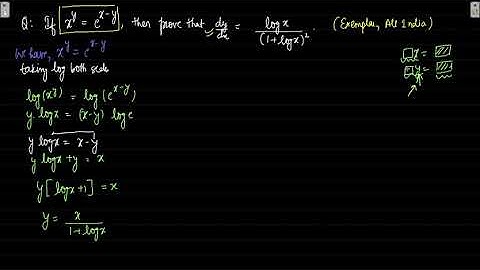 Q: If x^y = e^(x-y), then prove that dy/dx = log x / (1+log x)². (Exemplar, All India)
We have, x^y = e^(x-y)
taking log both side
log(x^y) = log(e^(x-y))
y log x = (x-y) log e
y log x = x-y
y log x + y = x
y[log x + 1] = x
y = x / (1+log x)
x =
y =